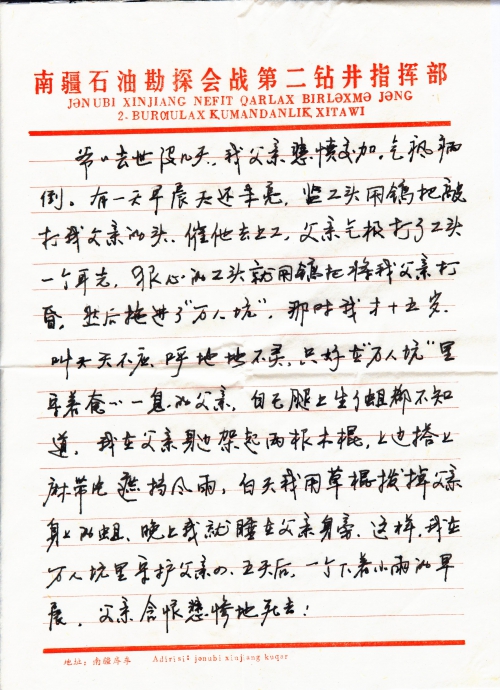 南疆石油勘探会战第二钻井指挥部
JƏNUBI XINJIANG NEFIT QARLAX BIRLƏXMƏ JƏNG
2-BURƢULAX KUMANDANLIK XITAWI
爷爷去世没几天，我父亲悲愤交加，气疯病
倒。有一天早晨天还未亮，监工头用镐把敲
打我父亲的头、催他去上工，父亲气极打了工头
一个耳光，狠心的工头就用镐把将我父亲打
昏，然后拖进了"万人坑"，那时我才十五岁，
叫天天不应，呼地地不灵，只好在"万人坑"里
守着奄奄一息的父亲，自己腿上生了蛆都不知
道，我在父亲身边架起两根木棍，上边搭上
麻带片遮挡风雨，白天我用草棍拨掉父亲
身上的蛆、晚上我就睡在父亲身旁，这样，我在
万人坑里守护父亲的，五天后，一个下着小雨的早
晨，父亲含恨悲惨地死去！
地址：南疆库车 Adirisi: jənubi xinjiang kuqar